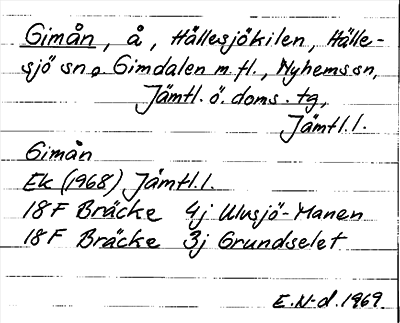 Gimån, å, Hällesjökilen, Hälle-
sjö sn o. Gimdalen m.fl., Nyhems sn,
Jämtl. ö. doms. tg,
Jämtl. l.
Gimån
Ek (1968) Jämtl. l.
18 F Bräcke 4j Ulusjö-Manen
18 F Bräcke 3j Grundselet
E. N-d. 1969